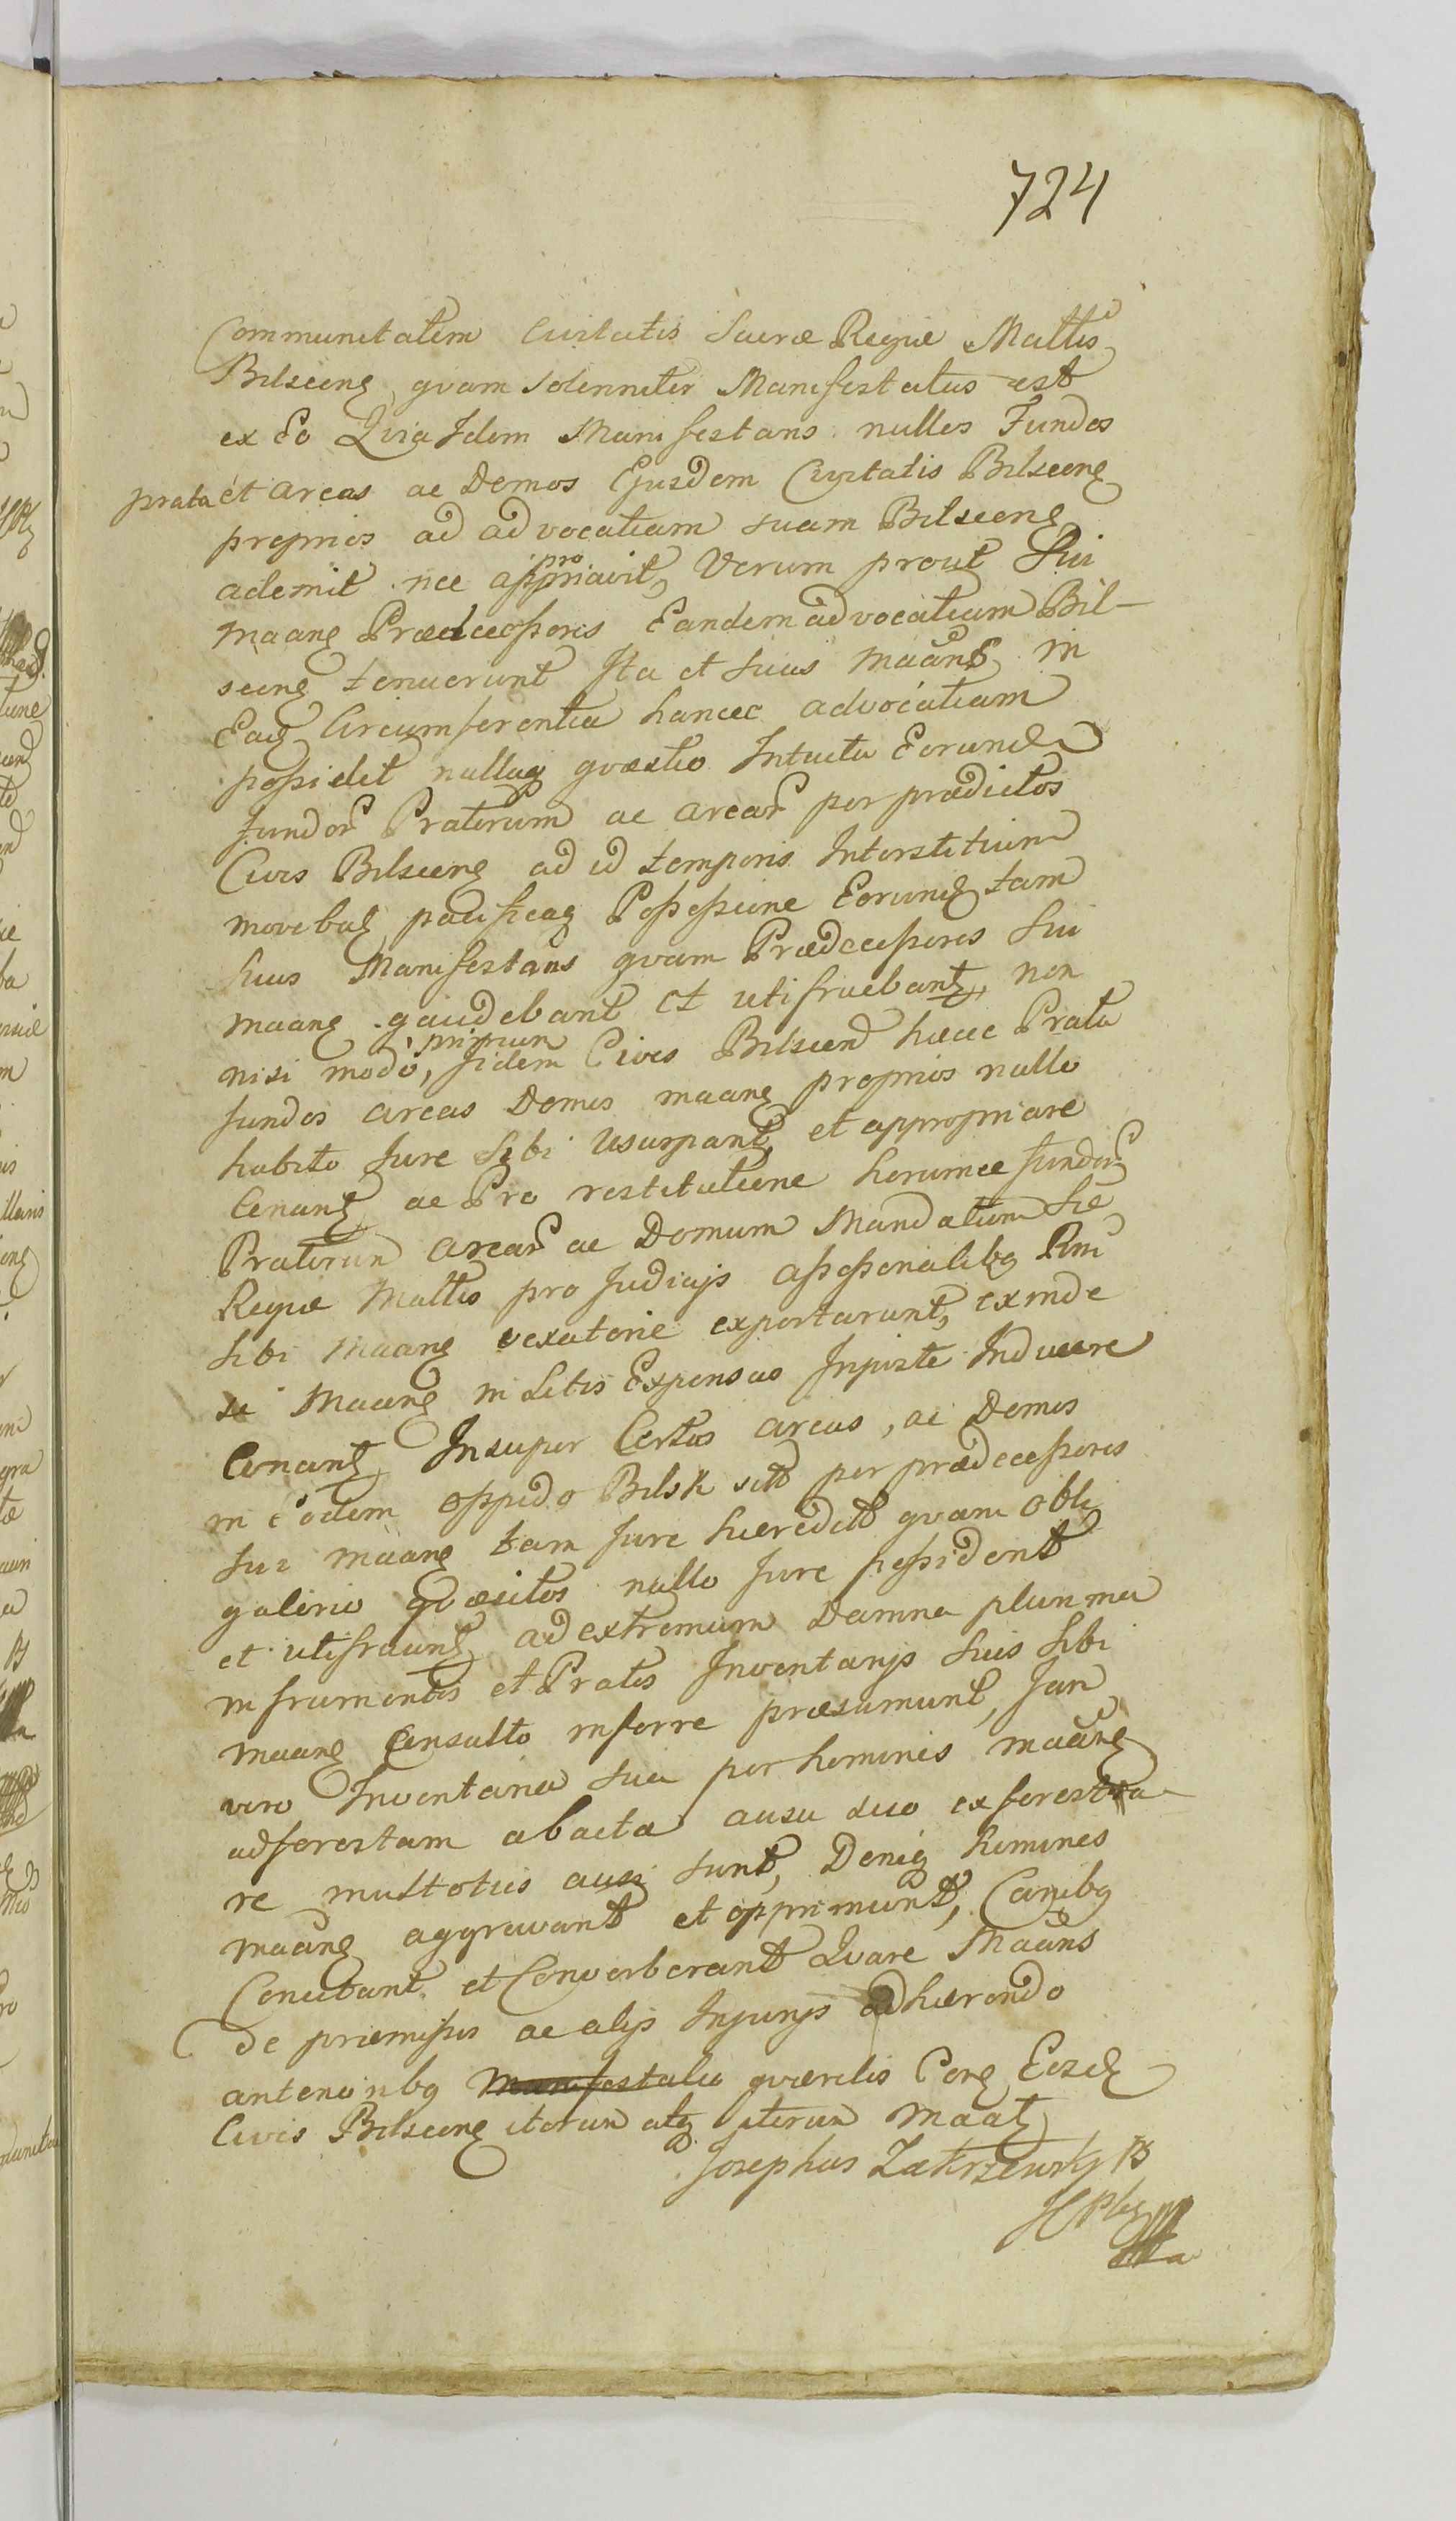 724
Communitatem Civitatis Sacræ Regiæ Mattis
Bilsceng qvam solenniter Manifestatus est
ex Eo Qvia Idem Manifestans nullos Fundos
prata et areas ac Domos Ejusdem Civitatis Bilsceng
proprios ad advocatiam suam Bilsceng
ademit nec appropriavit, Verum prout Sui
maang Prædecessores Eandem advocatiam Bil-
sceng tenuerunt Ita et suus maang in
Eaq Circumferentia hancce advocatiam
possidet nullaq qvæstio Intuitu Eorund
fundor Pratorum ac arear per prædictos
Cives Bilsceng ad id temporis Interstitium
movebat pacificaq Possessione Eorund tam
suus Manifestans qvam Prædecessores sui
maang gaudebant et utifruebant, non
nisi modo, primum Iidem Cives Bilscen hæcce Prata
fundos areas Domos maang proprios nullo
habito Jure sibi Usurpant, et appropriare
Conant ac Pro restitutione horumce fundor
Pratorum arear ac Domum Mandatum Sæ
Regiæ Mattis pro Judicijs assessorialibq Rni
sibi maang vexatorie exportarunt, exinde
se Maang in Litis Expensas Injuste Inducere
Conant, Insuper Certos areas, ac Domos
in Eodem oppido Bilsk sit per prædecessores
sui maang tam Jure hæredit qvam obli
gatorio qvæsitos nullo Jure possident
et utifruunt, ad extremum Damna plurima
in frumentis et Pratis Inventarijs suis sibi
maang Consulto inferre præsumunt, Jam
vero Inventaria sua per homines maang
ad forestam abacta ausu suo ex foresta
re multoties ausi sunt, Deniq homines
maang aggravant et opprimunt, Canibq
Concitant et Converberant Qvare Maans
de præmissis ac alijs Injurijs adhærendo
anterioribq qværelis Corq Eosd
Cives Bilsceng iterum atq iterum maat
Josephus Zakrzewsky